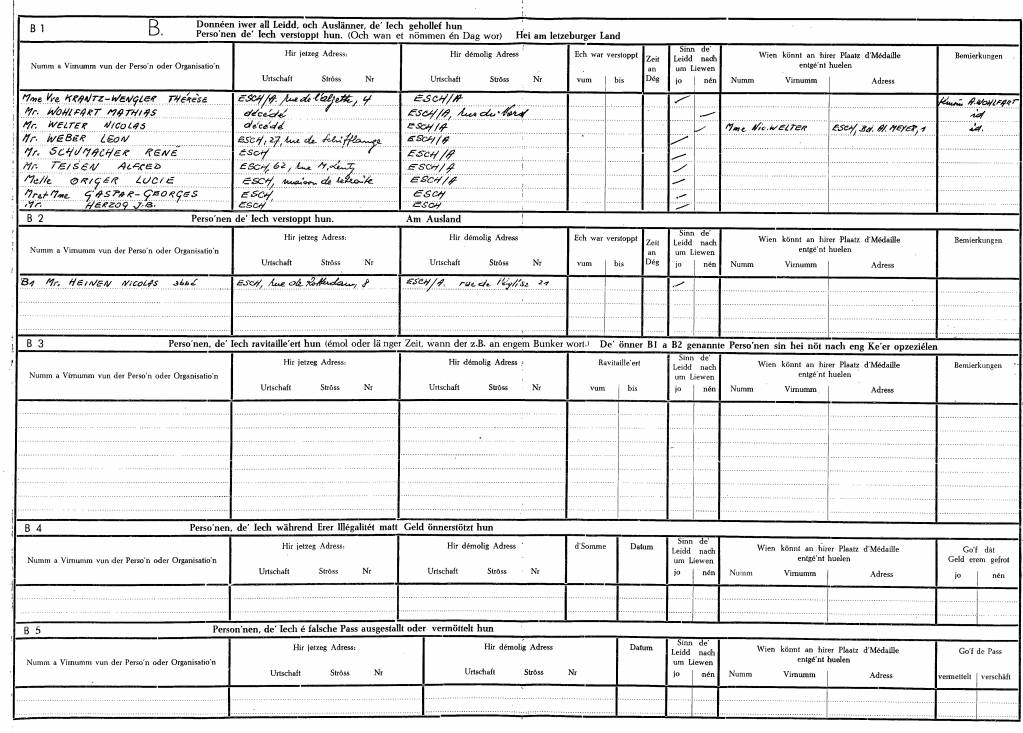 B 1 B. Donnéen iwer all Leidd, och Auslänner, de' Iech gehollef hun
Perso'nen de' Iech verstoppt hun. (Och wan et nömmen én Dag wor) Hei am letzeburger Land
Numm a Virnumm vun der Perso'n oder Organisatio'n Hir jetzeg Adress: Hir démolig Adress Ech war verstoppt Zeit an Dég Sinn de' Leidd nach um Liewen Wien könnt an hirer Plaatz d'Médaille entgé'nt huelen Bemierkungen
Urtschaft Ströss Nr Urtschaft Ströss Nr vum bis jo nén Numm Virnumm Adress
Mme Vve KRANTZ-WENGLER THÉRÈSE ESCH/A. rue de l'alzette, 4 ESCH/A A. WOHLFART
Mr. WOHLFART MATHIAS décédé ESCH/A, rue du Nord id
Mr. WELTER NICOLAS décédé ESCH/A Mme Nic. WELTER ESCH, Bd. Al. MEYER, 1 id.
Mr. WEBER LEON ESCH, 27, rue de Schifflange ESCH/A
Mr. SCHUMACHER RENÉ ESCH ESCH/A
Mr. TEISEN ALFRED ESCH, 62, rue M. Lentz ESCH/A
Melle ORIGER LUCIE ESCH, maison de retraite ESCH/A
Mr et Mme GASPAR-GEORGES ESCH, ESCH
Mr. HERZOG J.B. ESCH ESCH
B 2 Perso'nen de' Iech verstoppt hun. Am Ausland
Numm a Virnumm vun der Perso'n oder Organisatio'n Hir jetzeg Adress: Hir démolig Adress Ech war verstoppt Zeit an Dég Sinn de' Leidd nach um Liewen Wien könnt an hirer Plaatz d'Médaille entgé'nt huelen Bemierkungen
Urtschaft Ströss Nr Urtschaft Ströss Nr vum bis jo nén Numm Virnumm Adress
B1 Mr. HEINEN NICOLAS ESCH, rue de Rotterdam, 8 ESCH/A. rue de l'église 21
B 3 Perso'nen, de' Iech ravitaille'ert hun (émol oder länger Zeit, wann der z.B. an engem Bunker wort.) De' önner B1 a B2 genannte Perso'nen sin hei nöt nach eng Ke'er opzeziélen
Numm a Virnumm vun der Perso'n oder Organisatio'n Hir jetzeg Adress: Hir démolig Adress Ravitaille'ert Sinn de' Leidd nach um Liewen Wien könnt an hirer Plaatz d'Médaille entgé'nt huelen Bemierkungen
Urtschaft Ströss Nr Urtschaft Ströss Nr vum bis jo nén Numm Virnumm Adress
B 4 Perso'nen, de' Iech während Erer Illégalitét matt Geld önnerstötzt hun
Numm a Virnumm vun der Perso'n oder Organisatio'n Hir jetzeg Adress: Hir démolig Adress d'Somme Datum Sinn de' Leidd nach um Liewen Wien könnt an hirer Plaatz d'Médaille entgé'nt huelen Go'f dât Geld erem gefrot
Urtschaft Ströss Nr Urtschaft Ströss Nr jo nén Numm Virnumm Adress jo nén
B 5 Person'nen, de' Iech é falsche Pass ausgestallt oder vermöttelt hun
Numm a Virnumm vun der Perso'n oder Organisatio'n Hir jetzeg Adress: Hir démolig Adress Datum Sinn de' Leidd nach um Liewen Wien könnt an hirer Plaatz d'Médaille entgé'nt huelen Go'f de Pass
Urtschaft Ströss Nr Urtschaft Ströss Nr jo nén Numm Virnumm Adress vermettelt verschâft